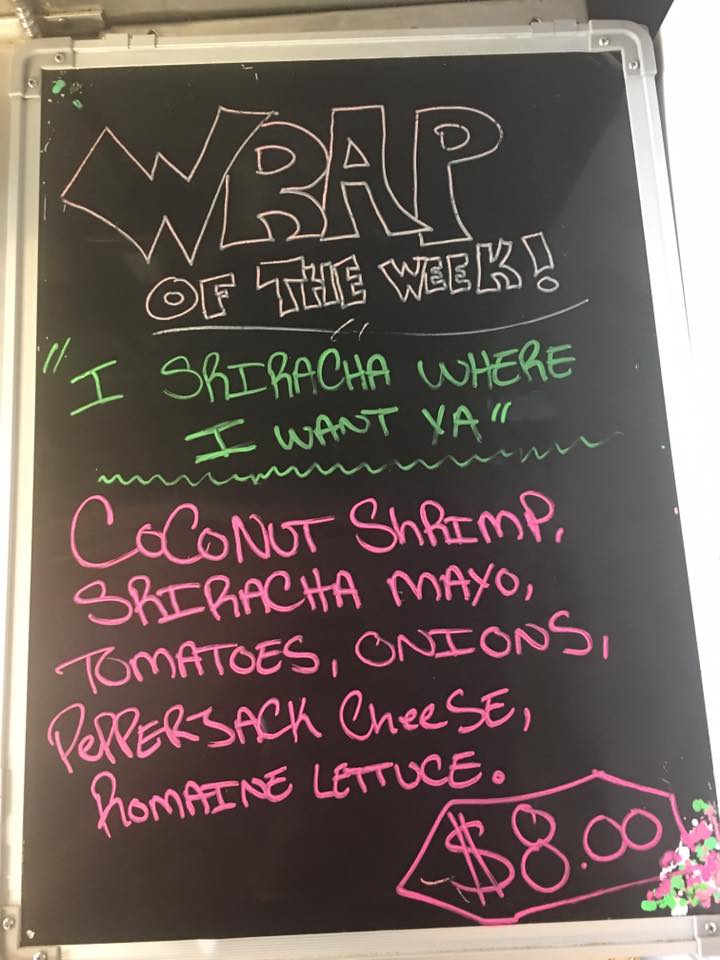 WRAP
OF THE WEEK!
"I SRIRACHA WHERE
I WANT YA"
COCONUT SHRIMP,
SRIRACHA MAYO,
TOMATOES, ONIONS,
PEPPERJACK CHEESE,
ROMAINE LETTUCE.
$8.00